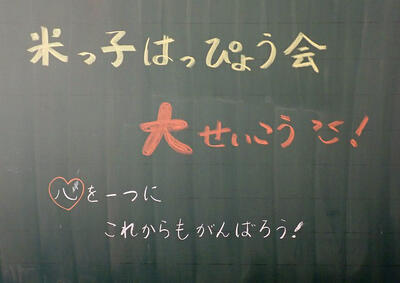 米っ子はっぴょう会
大せいこう!
心を一つに
これからもがんばろう!